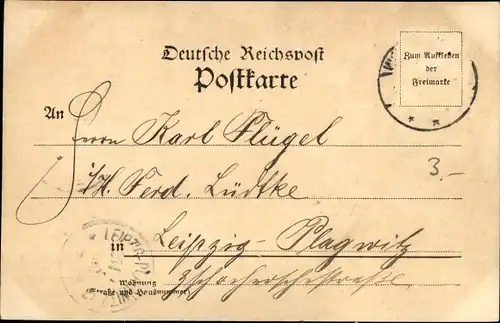 Deutsche Reichspost
Postkarte
Zum Aufkleben
der
Freimarke
An Herrn Karl Flügel
i/H. Ferd. Lüdtke
3.-
in Leipzig-Plagwitz
Wohnung
(Straße und Hausnummer)
Zschochersche straße
LEIPZIG-PL